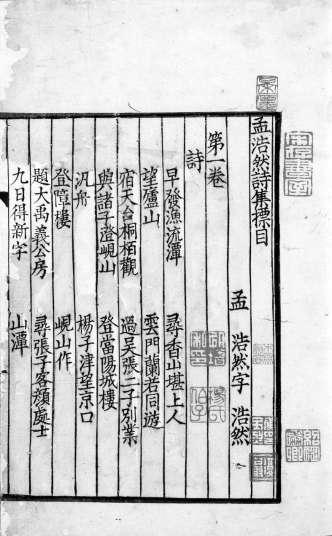 孟浩然詩集標目
孟 浩然字 浩然
第一卷
詩
早發漁浦潭 尋香山堪上人
望廬山 雲門蘭若同遊
宿天台桐栢觀 過吳張二子別業
與諸子登峴山 登當陽城樓
汎舟 楊子津望京口
登樓 峴山作
題大禹義公房 尋張子容顏處士
九日得新字 山潭